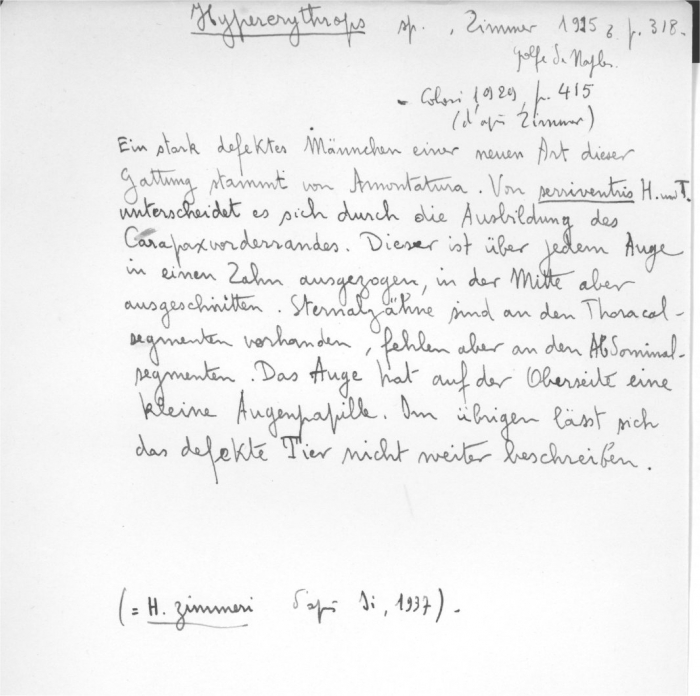 Hypererythrops sp., Zimmer 1915 b p. 318.
golfe de Naples.
- Colosi 1929, p. 415
(d'après Zimmer)
Ein stark defektes Männchen einer neuen Art dieser
Gattung stammt von Amontatura. Von serriventris H. und T.
unterscheidet es sich durch die Ausbildung des
Carapaxvorderrandes. Dieser ist über jedem Auge
in einen Zahn ausgezogen, in der Mitte aber
ausgeschnitten. Sternalzähne sind an den Thoracal-
segmenten vorhanden, fehlen aber an den Abdominal-
segmenten. Das Auge hat auf der Oberseite eine
kleine Augenpapille. Im übrigen lässt sich
das defekte Tier nicht weiter beschreiben.
(= H. zimmeri d'après Ii, 1937).